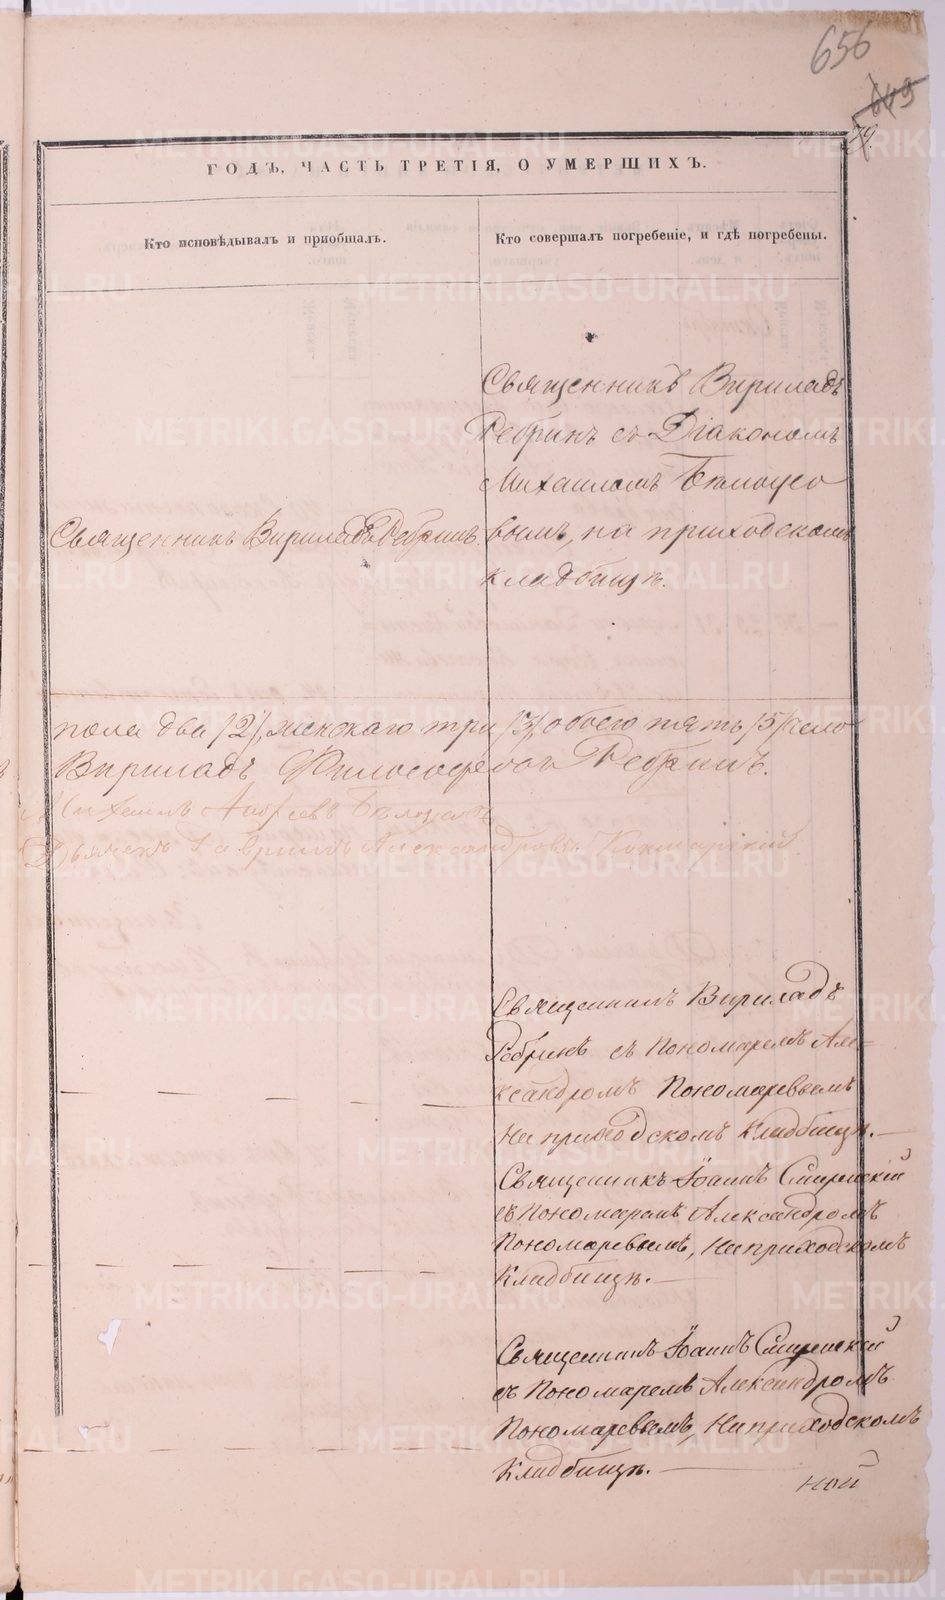 656
649
79.
ГОДЪ, ЧАСТЬ ТРЕТІЯ, О УМЕРШИХЪ.
Кто исповѣдывалъ и приобщалъ.
Кто совершалъ погребеніе, и гдѣ погребены.
Священникъ Вириладъ
Ребринъ съ Діакономъ
Михаиломъ Бѣлоусо
Священникъ Вириладъ Ребринъ.
вымъ, на приходскомъ
кладбищѣ.
пола два /2/, женскаго три /3/, обоего пять /5/ чело
Вириладъ Философовъ Ребринъ.
Михаилъ Андреевъ Бѣлоусовъ
Дьячекъ Гавріилъ Александровъ
Священникъ Вириладъ
Ребринъ съ Пономаремъ Але-
ксандромъ Пономаревымъ
На приходскомъ Кладбищѣ.
Священникъ Іоаннъ Смиренскій
съ Пономаремъ Александромъ
Пономаревымъ, На приходскомъ
Кладбищѣ.
Священникъ Іоаннъ Смиренскій
съ Пономаремъ Александромъ
Пономаревымъ, На приходскомъ
Кладбищѣ.
ной
METRIKI.GASO-URAL.RU